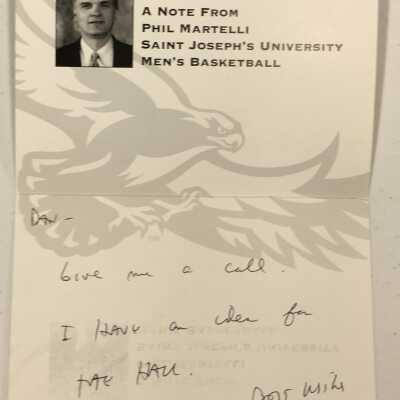 A NOTE FROM
PHIL MARTELLI
SAINT JOSEPH'S UNIVERSITY
MEN'S BASKETBALL
Dan -
Give me a call.
I HAVE an idea for
THE HALL.